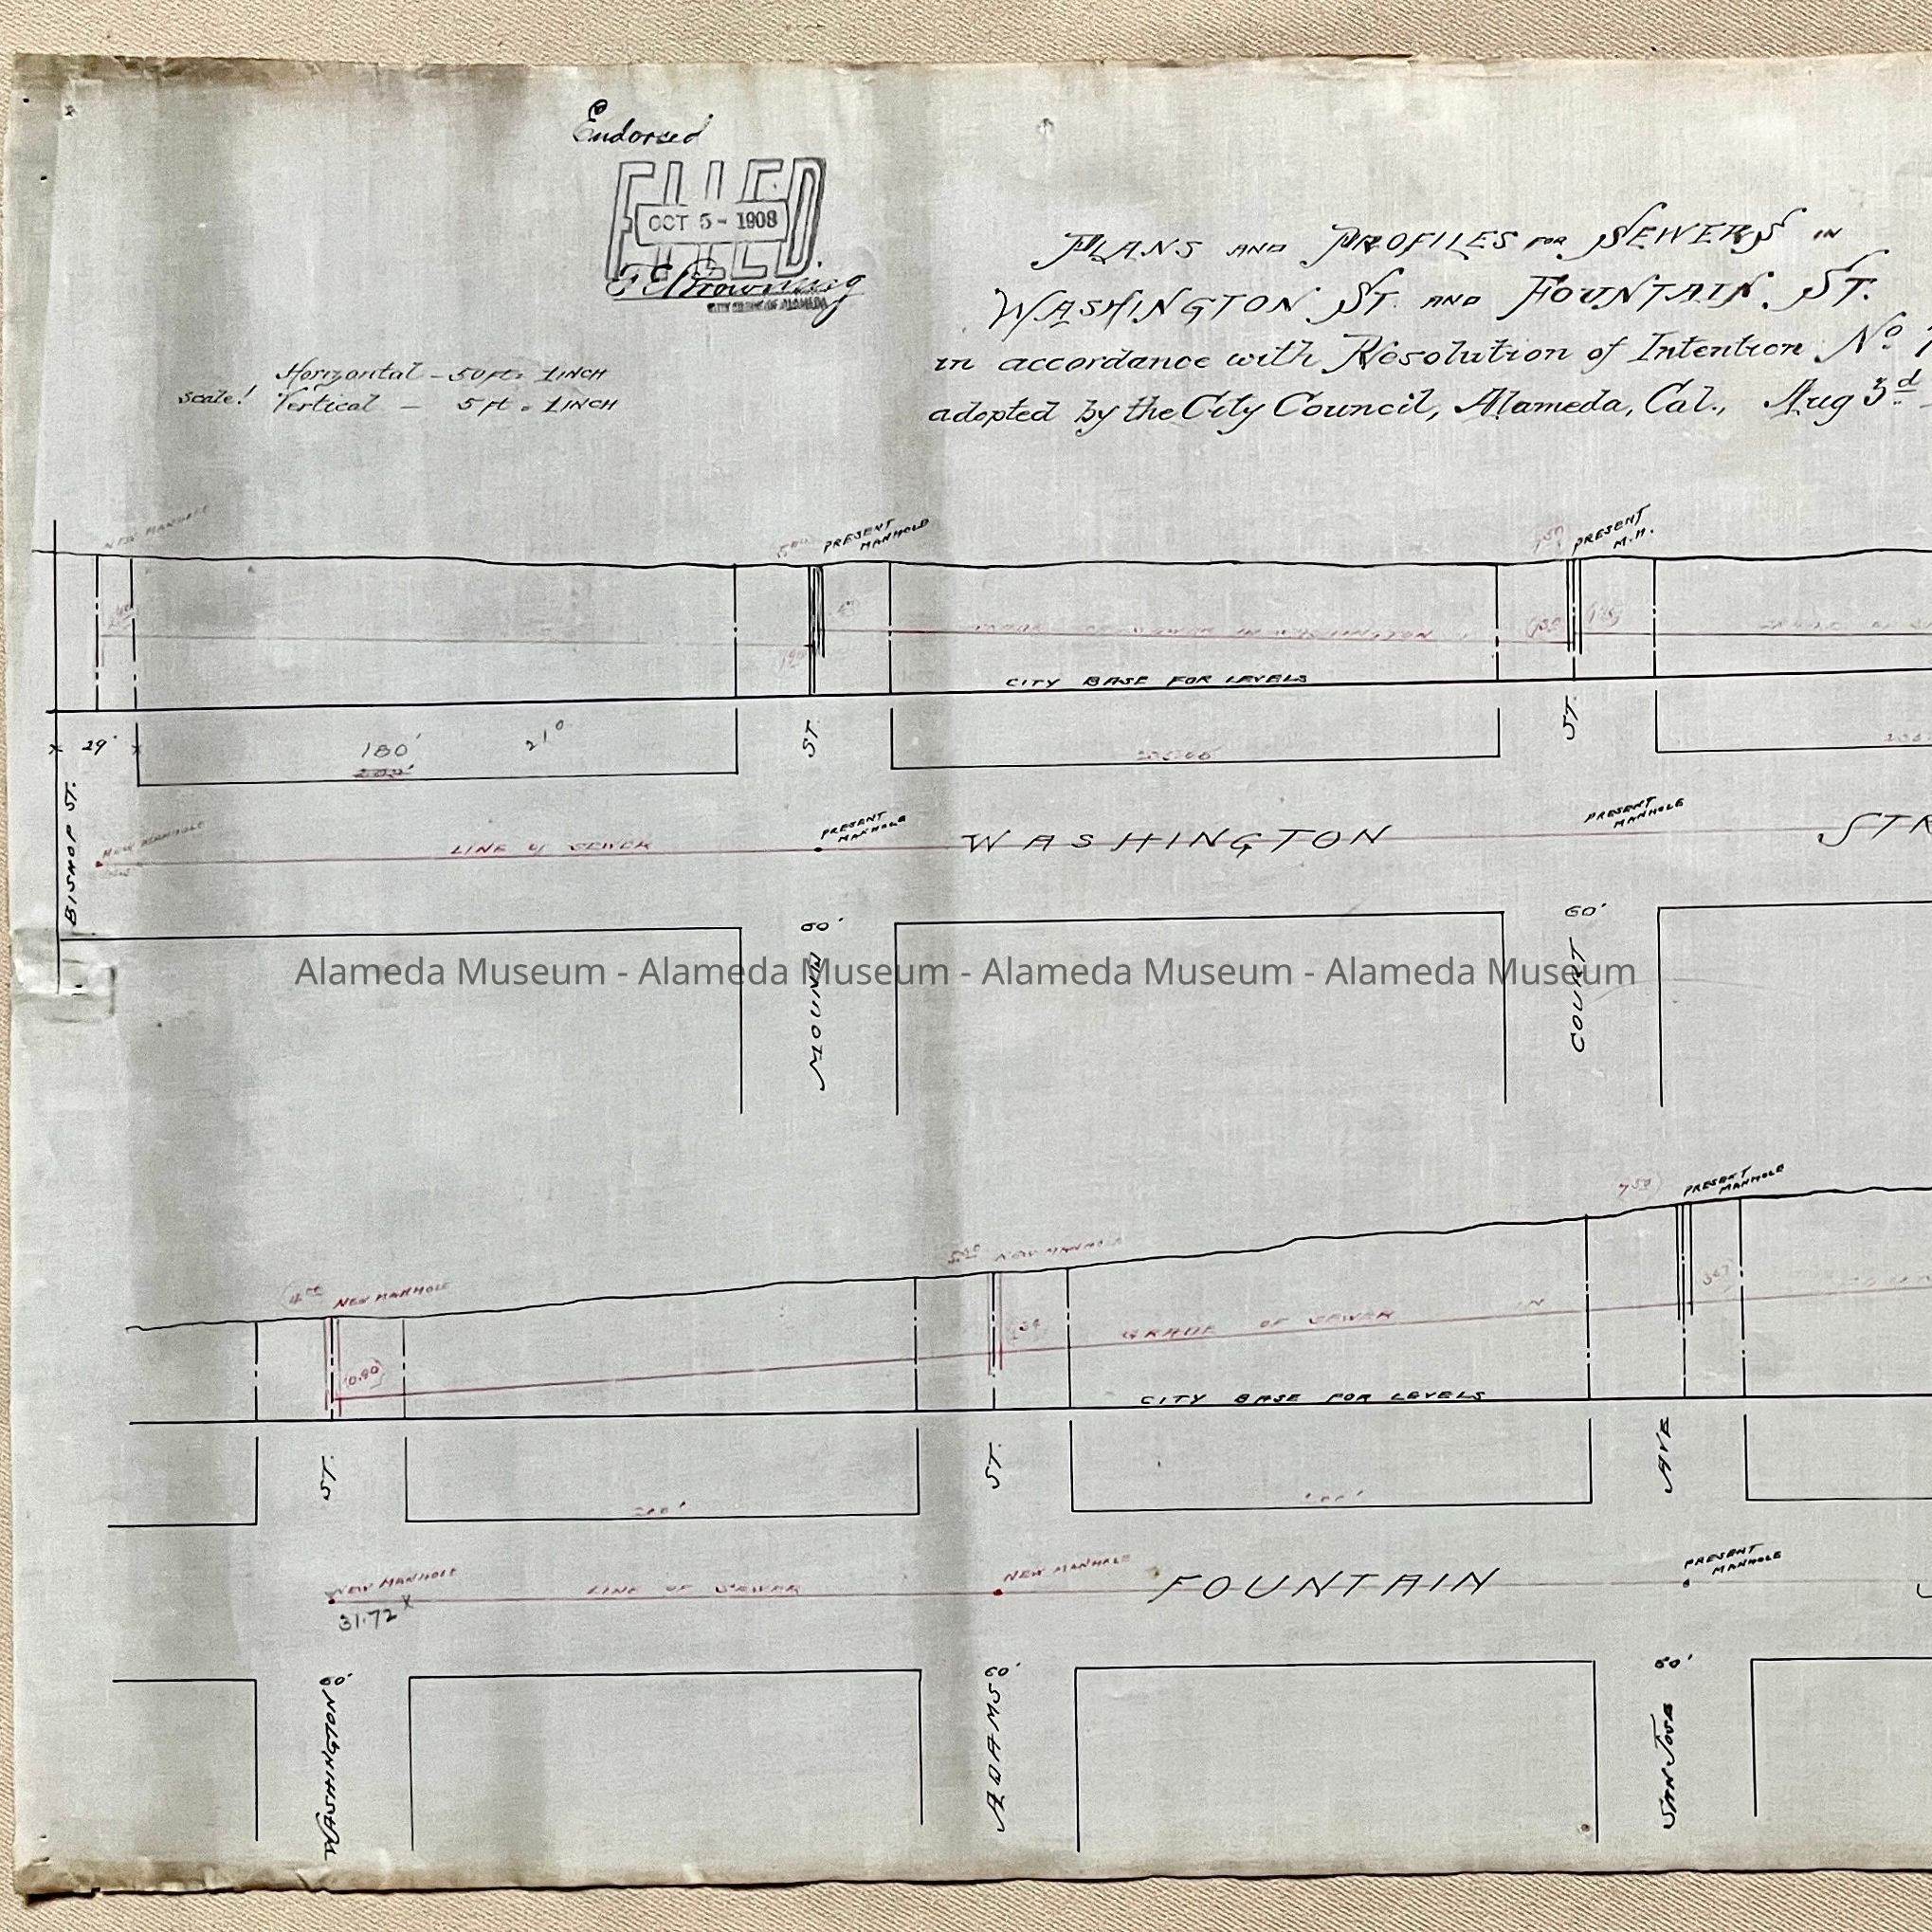 Endorsed
FILED
OCT 5 - 1908
F E Browning
CITY CLERK OF ALAMEDA
Scale! Horizontal - 50 ft = 1 INCH
Vertical - 5 ft = 1 INCH
PLANS AND PROFILES FOR SEWERS IN
WASHINGTON ST. AND FOUNTAIN. ST.
in accordance with Resolution of Intention No
adopted by the City Council, Alameda, Cal., Aug 3d
NEW MANHOLE
PRESENT
MANHOLE
PRESENT
M.H.
GRADE OF SEWER IN WASHINGTON
CITY BASE FOR LEVELS
29'
180'
210
ST.
ST.
BISHOP ST.
NEW MANHOLE
LINE of SEWER
PRESENT
MANHOLE
WASHINGTON
PRESENT
MANHOLE
STR
60'
MOUND
60'
COURT
Alameda Museum - Alameda Museum - Alameda Museum - Alameda Museum
PRESENT
MANHOLE
NEW MANHOLE
NEW MANHOLE
0.90
GRADE OF SEWER IN
CITY BASE FOR LEVELS
ST.
ST.
AVE
200'
NEW MANHOLE
31.72 x
LINE OF SEWER
NEW MANHOLE
FOUNTAIN
PRESENT
MANHOLE
60'
WASHINGTON
60'
ADAMS
60'
SAN JOSE